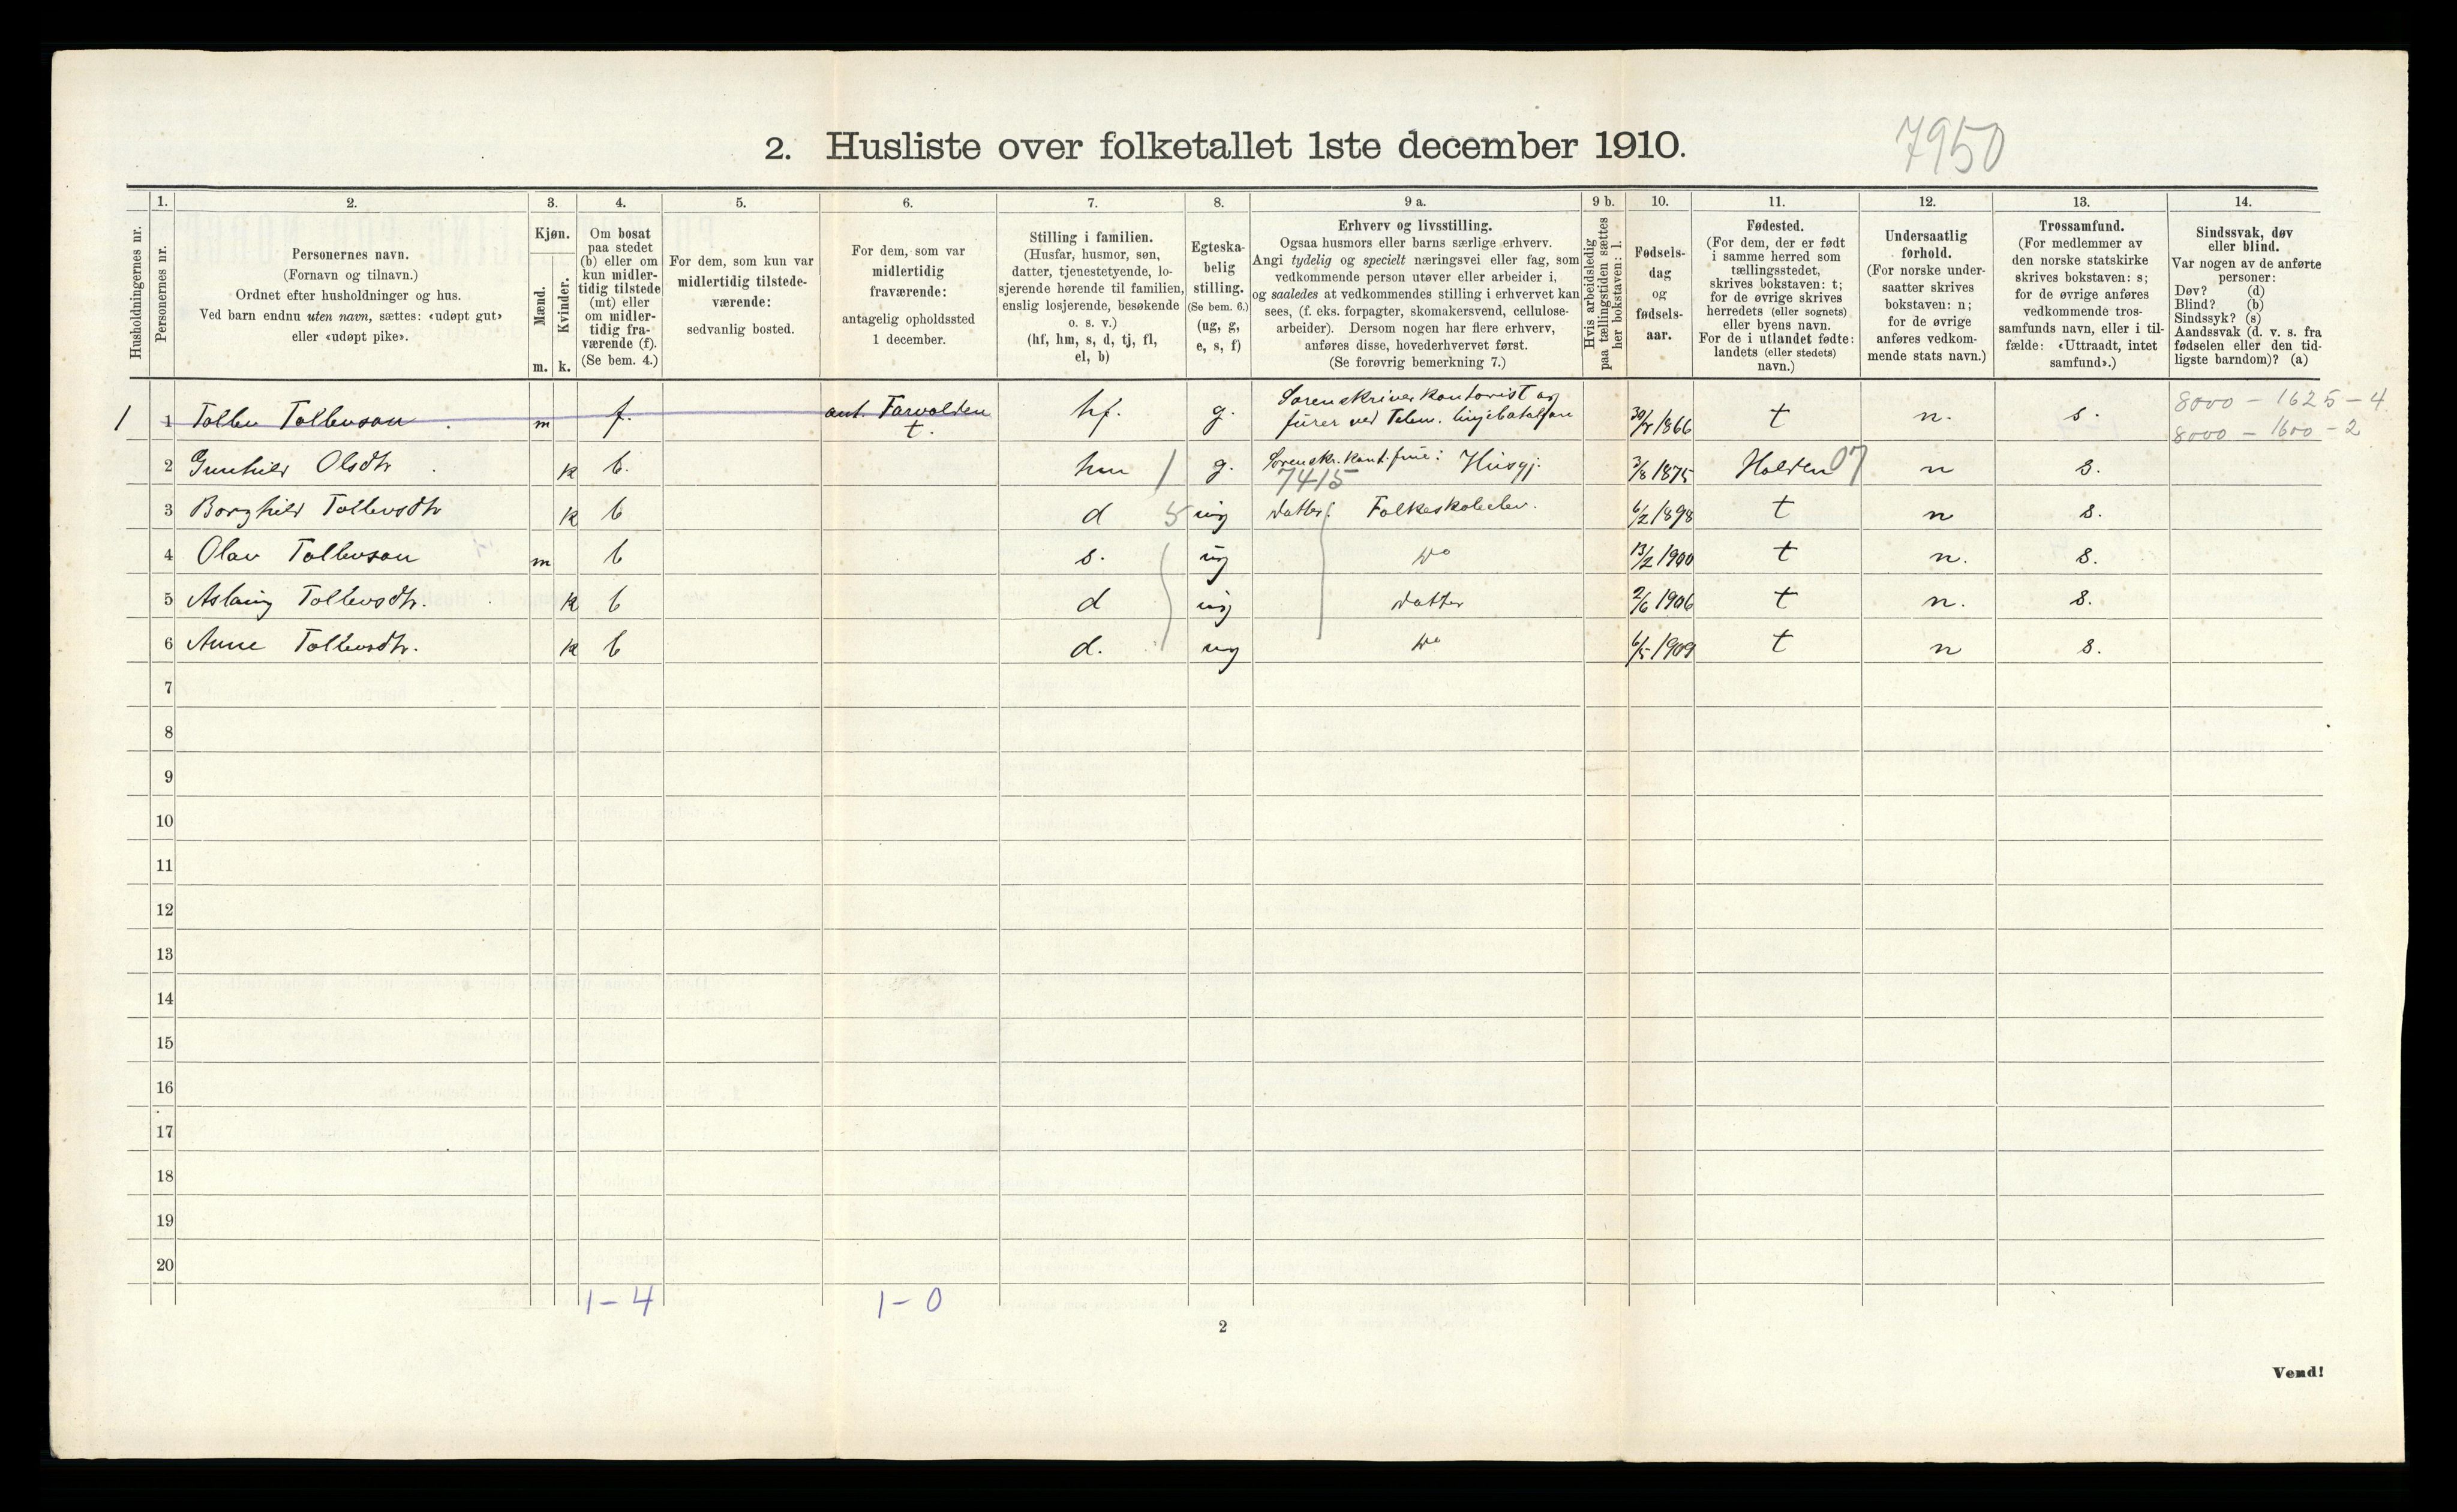 2. Husliste over folketallet 1ste december 1910.
7950
Husholdningernes nr.
1.
Personernes nr.
2.
Personernes navn.
(Fornavn og tilnavn.)
Ordnet efter husholdninger og hus.
Ved barn endnu uten navn, sættes: «udøpt gut»
eller «udøpt pike».
3.
Kjøn.
Mænd.
Kvinder.
m. k.
4.
Om bosat
paa stedet
(b) eller om
kun midler-
tidig tilstede
(mt) eller
om midler-
tidig fra-
værende (f).
(Se bem. 4.)
5.
For dem, som kun var
midlertidig tilstede-
værende:
sedvanlig bosted.
6.
For dem, som var
midlertidig
fraværende:
antagelig opholdssted
1 december.
7.
Stilling i familien.
(Husfar, husmor, søn,
datter, tjenestetyende, lo-
sjerende hørende til familien,
enslig losjerende, besøkende
o. s. v.)
(hf, hm, s, d, tj, fl,
el, b)
8.
Egteska-
belig
stilling.
(Se bem. 6.)
(ug, g,
e, s, f)
9 a.
Erhverv og livsstilling.
Ogsaa husmors eller barns særlige erhverv.
Angi tydelig og specielt næringsvei eller fag, som
vedkommende person utøver eller arbeider i,
og saaledes at vedkommendes stilling i erhvervet kan
sees, (f. eks. forpagter, skomakersvend, cellulose-
arbeider). Dersom nogen har flere erhverv,
anføres disse, hovederhvervet først.
(Se forøvrig bemerkning 7.)
9 b.
Hvis arbeidsledig
paa tællingstiden sættes
her bokstaven: l.
10.
Fødsels-
dag
og
fødsels-
aar.
11.
Fødested.
(For dem, der er født
i samme herred som
tællingsstedet,
skrives bokstaven: t;
for de øvrige skrives
herredets (eller sognets)
eller byens navn.
For de i utlandet fødte:
landets (eller stedets)
navn.)
12.
Undersaatlig
forhold.
(For norske under-
saatter skrives
bokstaven: n;
for de øvrige
anføres vedkom-
mende stats navn.)
13.
Trossamfund.
(For medlemmer av
den norske statskirke
skrives bokstaven: s;
for de øvrige anføres
vedkommende tros-
samfunds navn, eller i til-
fælde: «Uttraadt, intet
samfund».)
14.
Sindssvak, døv
eller blind.
Var nogen av de anførte
personer:
Døv? (d)
Blind? (b)
Sindssyk? (s)
Aandssvak (d. v. s. fra
fødselen eller den tid-
ligste barndom)? (a)
1 1 Tollev Tollevson m f. ant. Farvolden t. hf. g. Sorenskriverkontorist og furer ved Telem. linjebataljon 1866 t n. s. 8000 - 1625 - 4
8000 - 1600 - 2
2 Gunhild Olsdtr k b. hm g. Sorenskr.kont.frue: Husgj. 7415 3/8 1875 Holden 07 n s.
3 Borghild Tollevsdtr k b d 5 ug datter: Folkeskoleelev. 6/2 1898 t n s.
4 Olav Tollevson m b s. ug do 13/2 1900 t n. s.
5 Aslaug Tollevsdtr. k b d ug datter 2/6 1906 t n. s.
6 Anne Tollevsdtr. k b d. ug do 6/5 1909 t n s.
7
8
9
10
11
12
13
14
15
16
17
18
19
20
1 - 4 1 - 0
2
Vend!